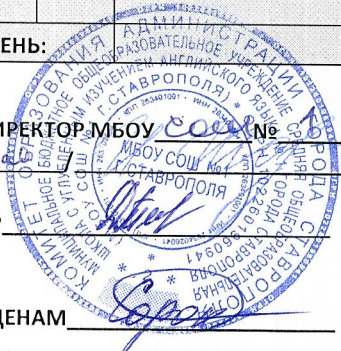 ЕНЬ:
ИРЕКТОР МБОУ СОШ № 1
ЦЕНАМ
КОМИТЕТ ОБРАЗОВАНИЯ АДМИНИСТРАЦИИ ГОРОДА СТАВРОПОЛЯ
МУНИЦИПАЛЬНОЕ БЮДЖЕТНОЕ ОБЩЕОБРАЗОВАТЕЛЬНОЕ УЧРЕЖДЕНИЕ СРЕДНЯЯ ОБЩЕОБРАЗОВАТЕЛЬНАЯ
ШКОЛА С УГЛУБЛЕННЫМ ИЗУЧЕНИЕМ АНГЛИЙСКОГО ЯЗЫКА
ГОРОДА СТАВРОПОЛЯ
Г.СТАВРОПОЛЯ)
МБОУ СОШ №1
Г.СТАВРОПОЛЯ